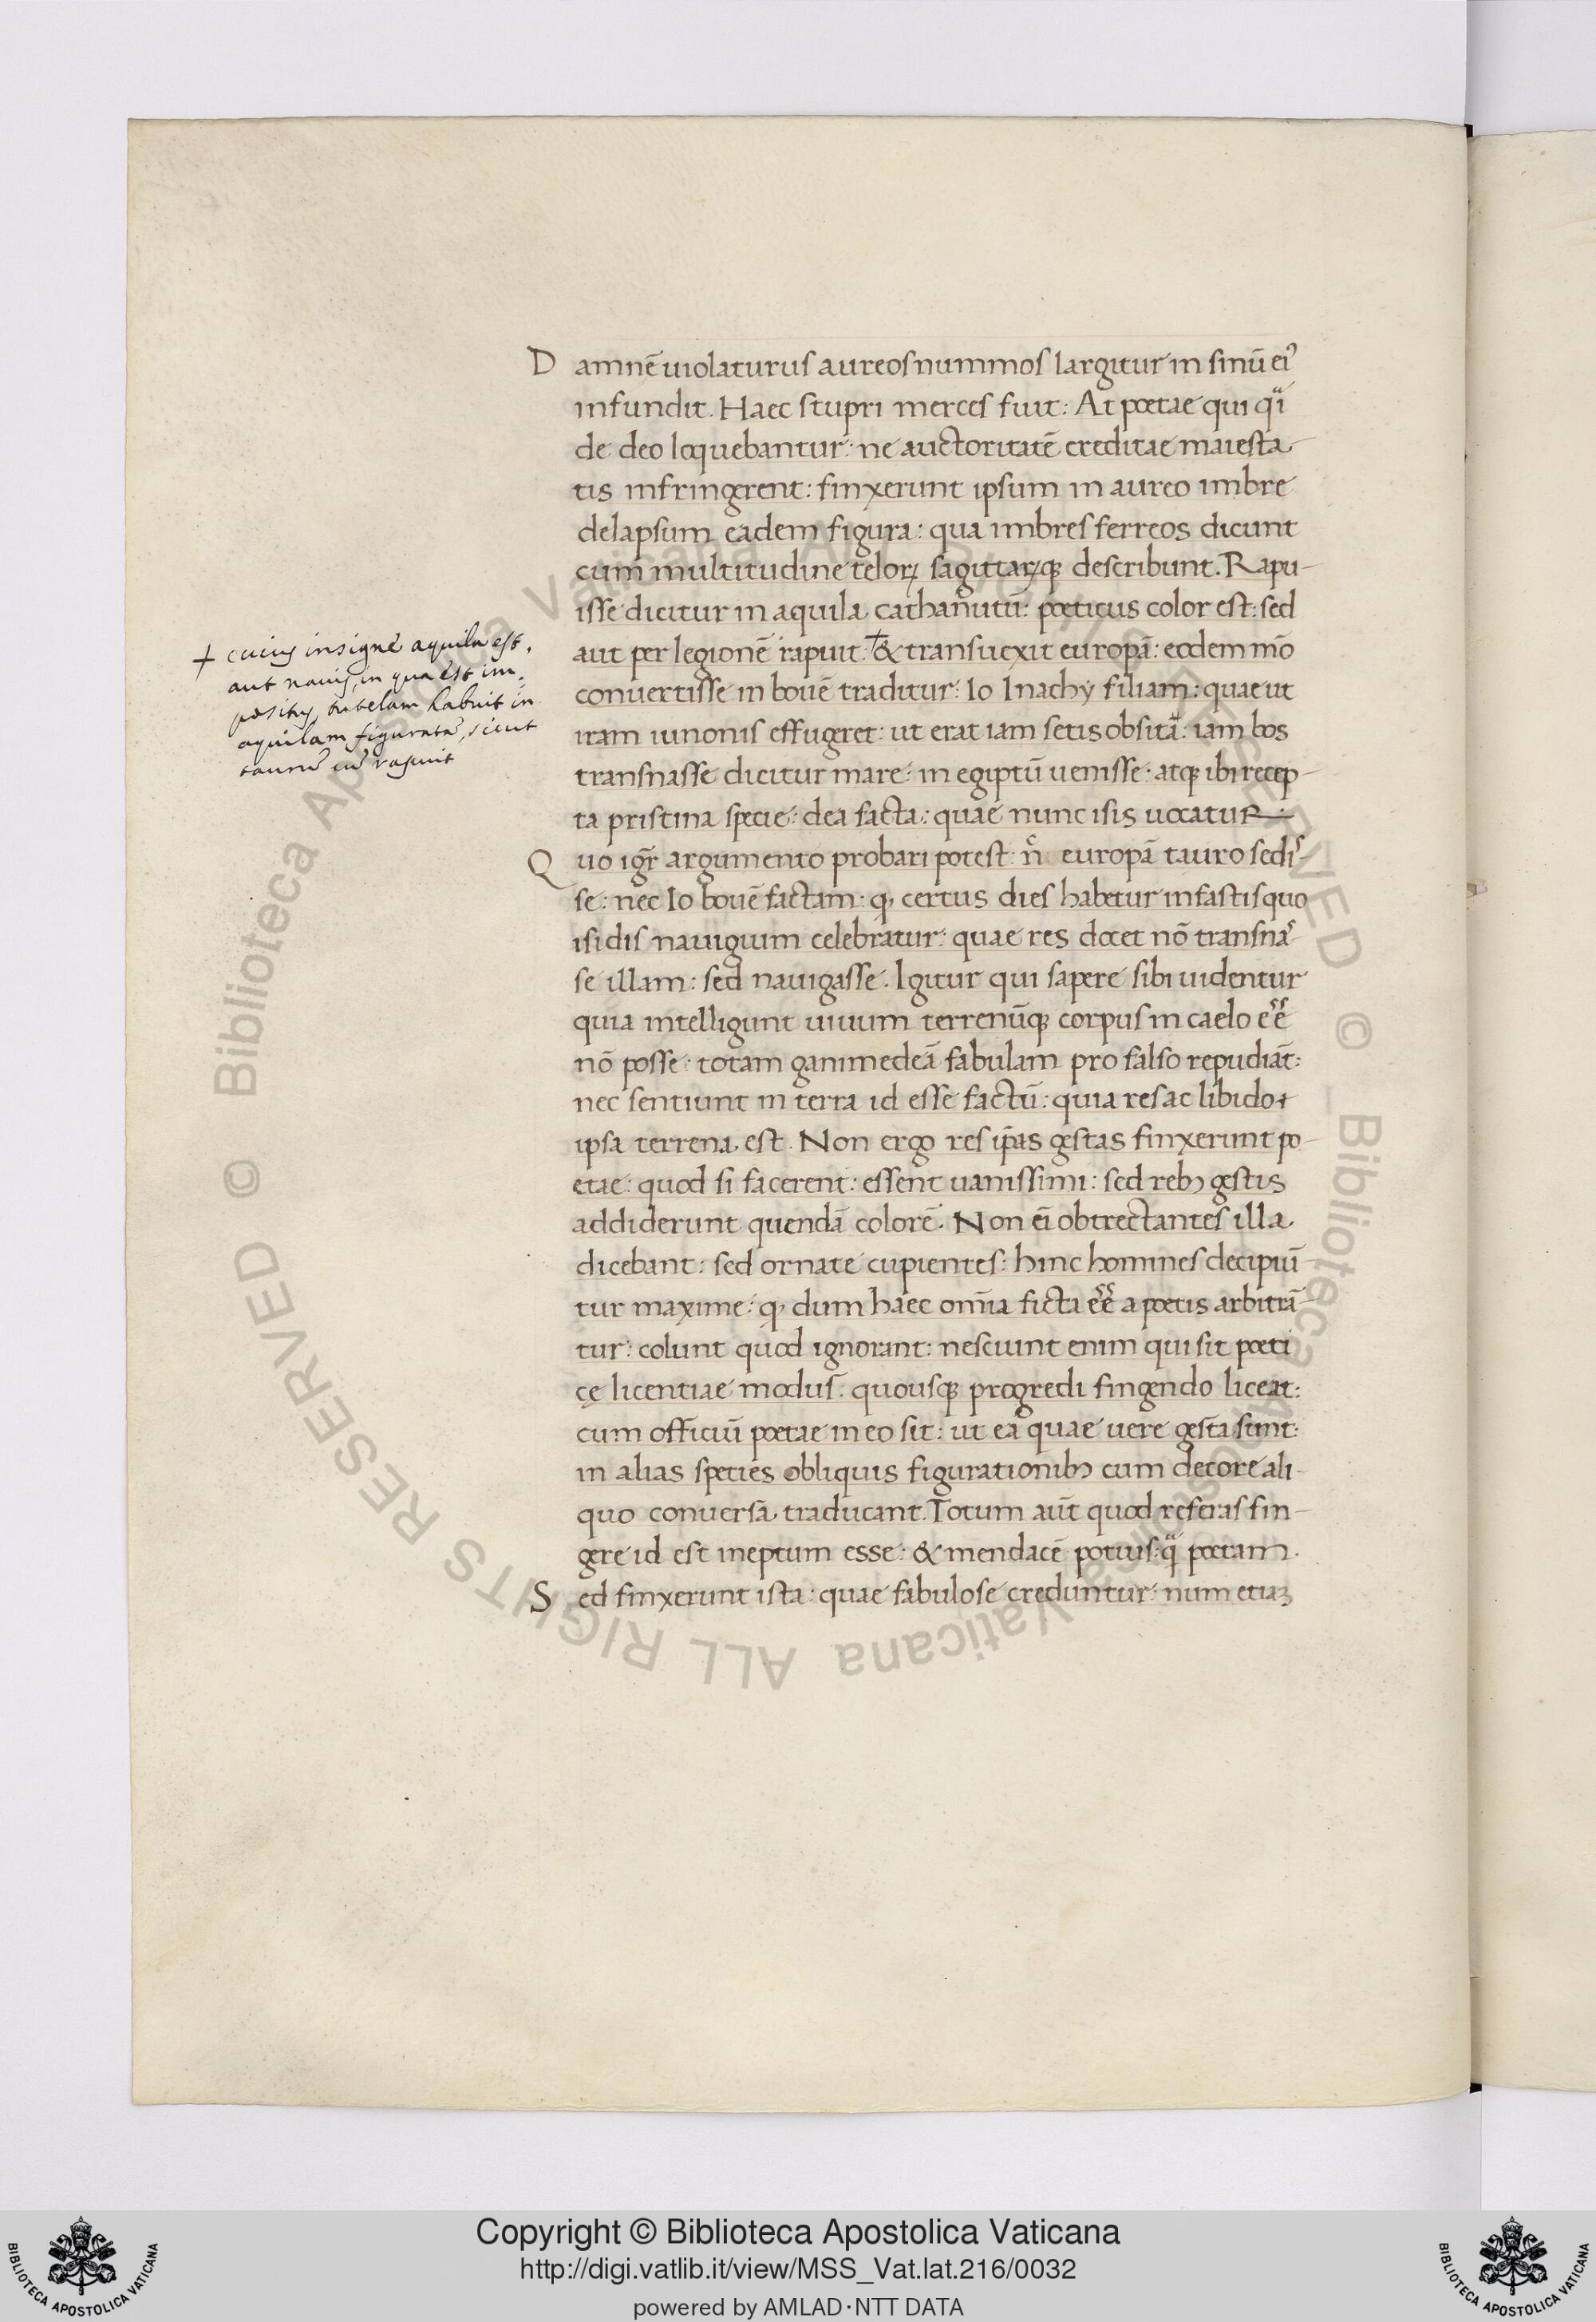 Damnē uiolaturus aureos nummos largitur in sinū ei᾽
infundit. Haec stupri merces fuit: At poetae qui q̈i
de deo loquebantur: ne auctoritatē creditae maiesta
tis infringerent: finxerunt ipsum in aureo imbre
delapsum eadem figura: qua imbres ferreos dicunt
cum multitudine teloꝝ sagittaꝝqꝫ describunt. Rapu-
isse dicitur in aquila : poeticus color est: sed
aut per legionē rapuit: ☩& transuexit europā: eodem mō
conuertisse in bouē traditur: Io Inachy filiam: quae ut
iram iunonis effugeret: ut erat iam setis obsita: iam bos
transnasse dicitur mare: in egiptū uenisse: atqꝫ ibi recep-
ta pristina specie: dea facta: quae nunc isis uocatur
Quo igr̄ argumento probari potest: n̊ europā tauro sedis-
se: nec Io bouē factam: ꝙ certus dies habetur in fastis quo
isidis nauigium celebratur: quae res docet nō transnas-
se illam: sed nauigasse. Igitur qui sapere sibi uidentur
quia intelligunt uiuum terrenūqꝫ corpus in caelo eē
nō posse: totam ganimedeā fabulam pro falso repudiāt:
nec sentiunt in terra id esse factū: quia res ac libido
ipsa terrena est. Non ergo res ip̄as gestas finxerunt po-
etae: quod si facerent: essent uanissimi: sed rebꝫ gestis
addiderunt quendā colorē. Non eī obtrectantes illa
dicebant: sed ornate cupientes: hinc homines decipiū-
tur maxime: ꝙ dum haec om̄ia ficta eē a poetis arbitrā-
tur: colunt quod ignorant: nesciunt enim qui sit poeti
cę licentiae modus: quousqꝫ progredi fingendo liceat:
cum officiū poetae in eo sit: ut ea quae uere gesta sunt:
in alias speties obliquis figurationibꝫ cum decore ali-
quo conuersa traducant. Totum aūt quod referas fin-
gere id est ineptum esse: & mendacē potius: q̈ poetam.
Sed finxerunt ista: quae fabulose creduntur: num etiaꝫ
+ cuius insigne aquila est,
aut nauis, in qua est im-
positus, tutelam habuit in
aquilam figuratā, sicut
taurū cū rapuit
© Biblioteca Apostolica Vaticana ALL RIGHTS RESERVED
© Biblioteca Apostolica Vaticana ALL RIGHTS RESERVED
Copyright © Biblioteca Apostolica Vaticana
http://digi.vatlib.it/view/MSS_Vat.lat.216/0032
powered by AMLAD·NTT DATA
BIBLIOTECA APOSTOLICA VATICANA
BIBLIOTECA APOSTOLICA VATICANA